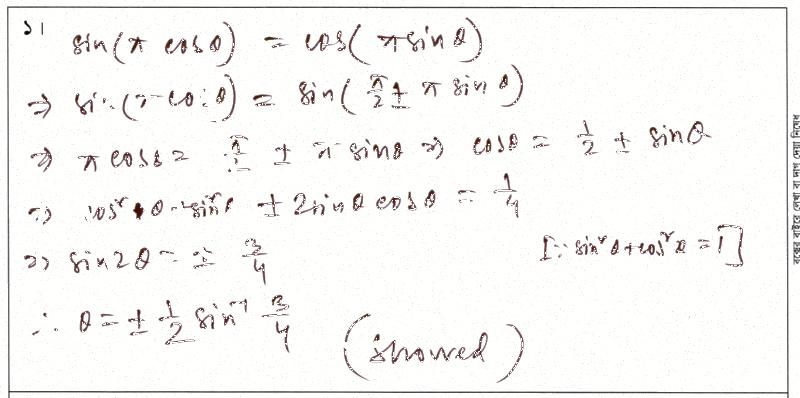 ১।
sin(π cosθ) = cos(π sinθ)
⇒ sin(π cosθ) = sin(π/2 ± π sinθ)
⇒ π cosθ = π/2 ± π sinθ ⇒ cosθ = 1/2 ± sinθ
⇒ cos²θ + sin²θ ± 2sinθ cosθ = 1/4
⇒ sin2θ = ± 3/4 [∵ sin²θ + cos²θ = 1]
∴ θ = ± 1/2 sin⁻¹ 3/4
(showed)
বক্সের বাইরে লেখা বা দাগ দেয়া নিষেধ